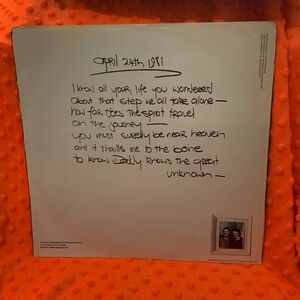 April 24th 1981
I know all your life you wondered
about that step we all take alone —
how far does the spirit travel
on the journey —
you must surely be near heaven
and it thrills me to the bone
to know Daddy knows the great
unknown —